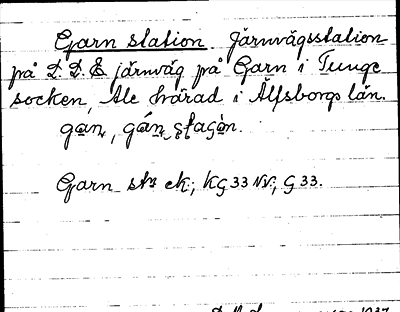 Garn station Järnvägsstation
på D. D. E järnväg på Garn i Tunge
socken, Ale härad i Älfsborgs län.
Garn stn ek; KG 33 NV; G 33.